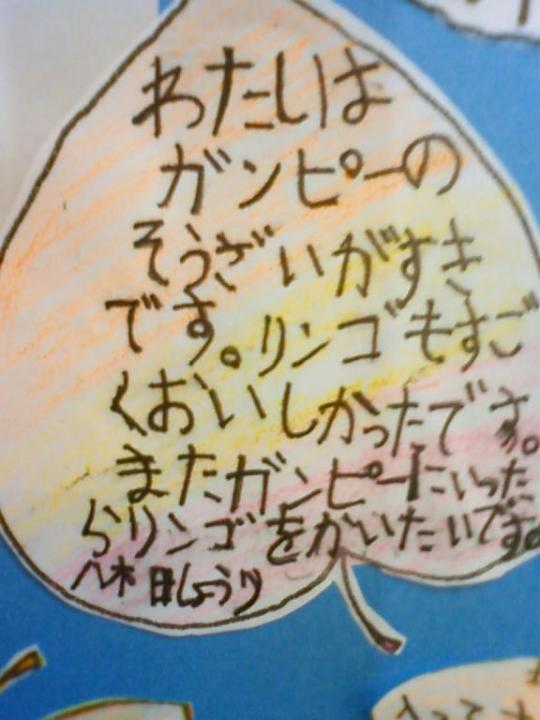 わたしは
ガンピーの
そうざいがすき
です。リンゴもすご
くおいしかったです。
またガンピーにいった
らリンゴをかいたいです。
八木